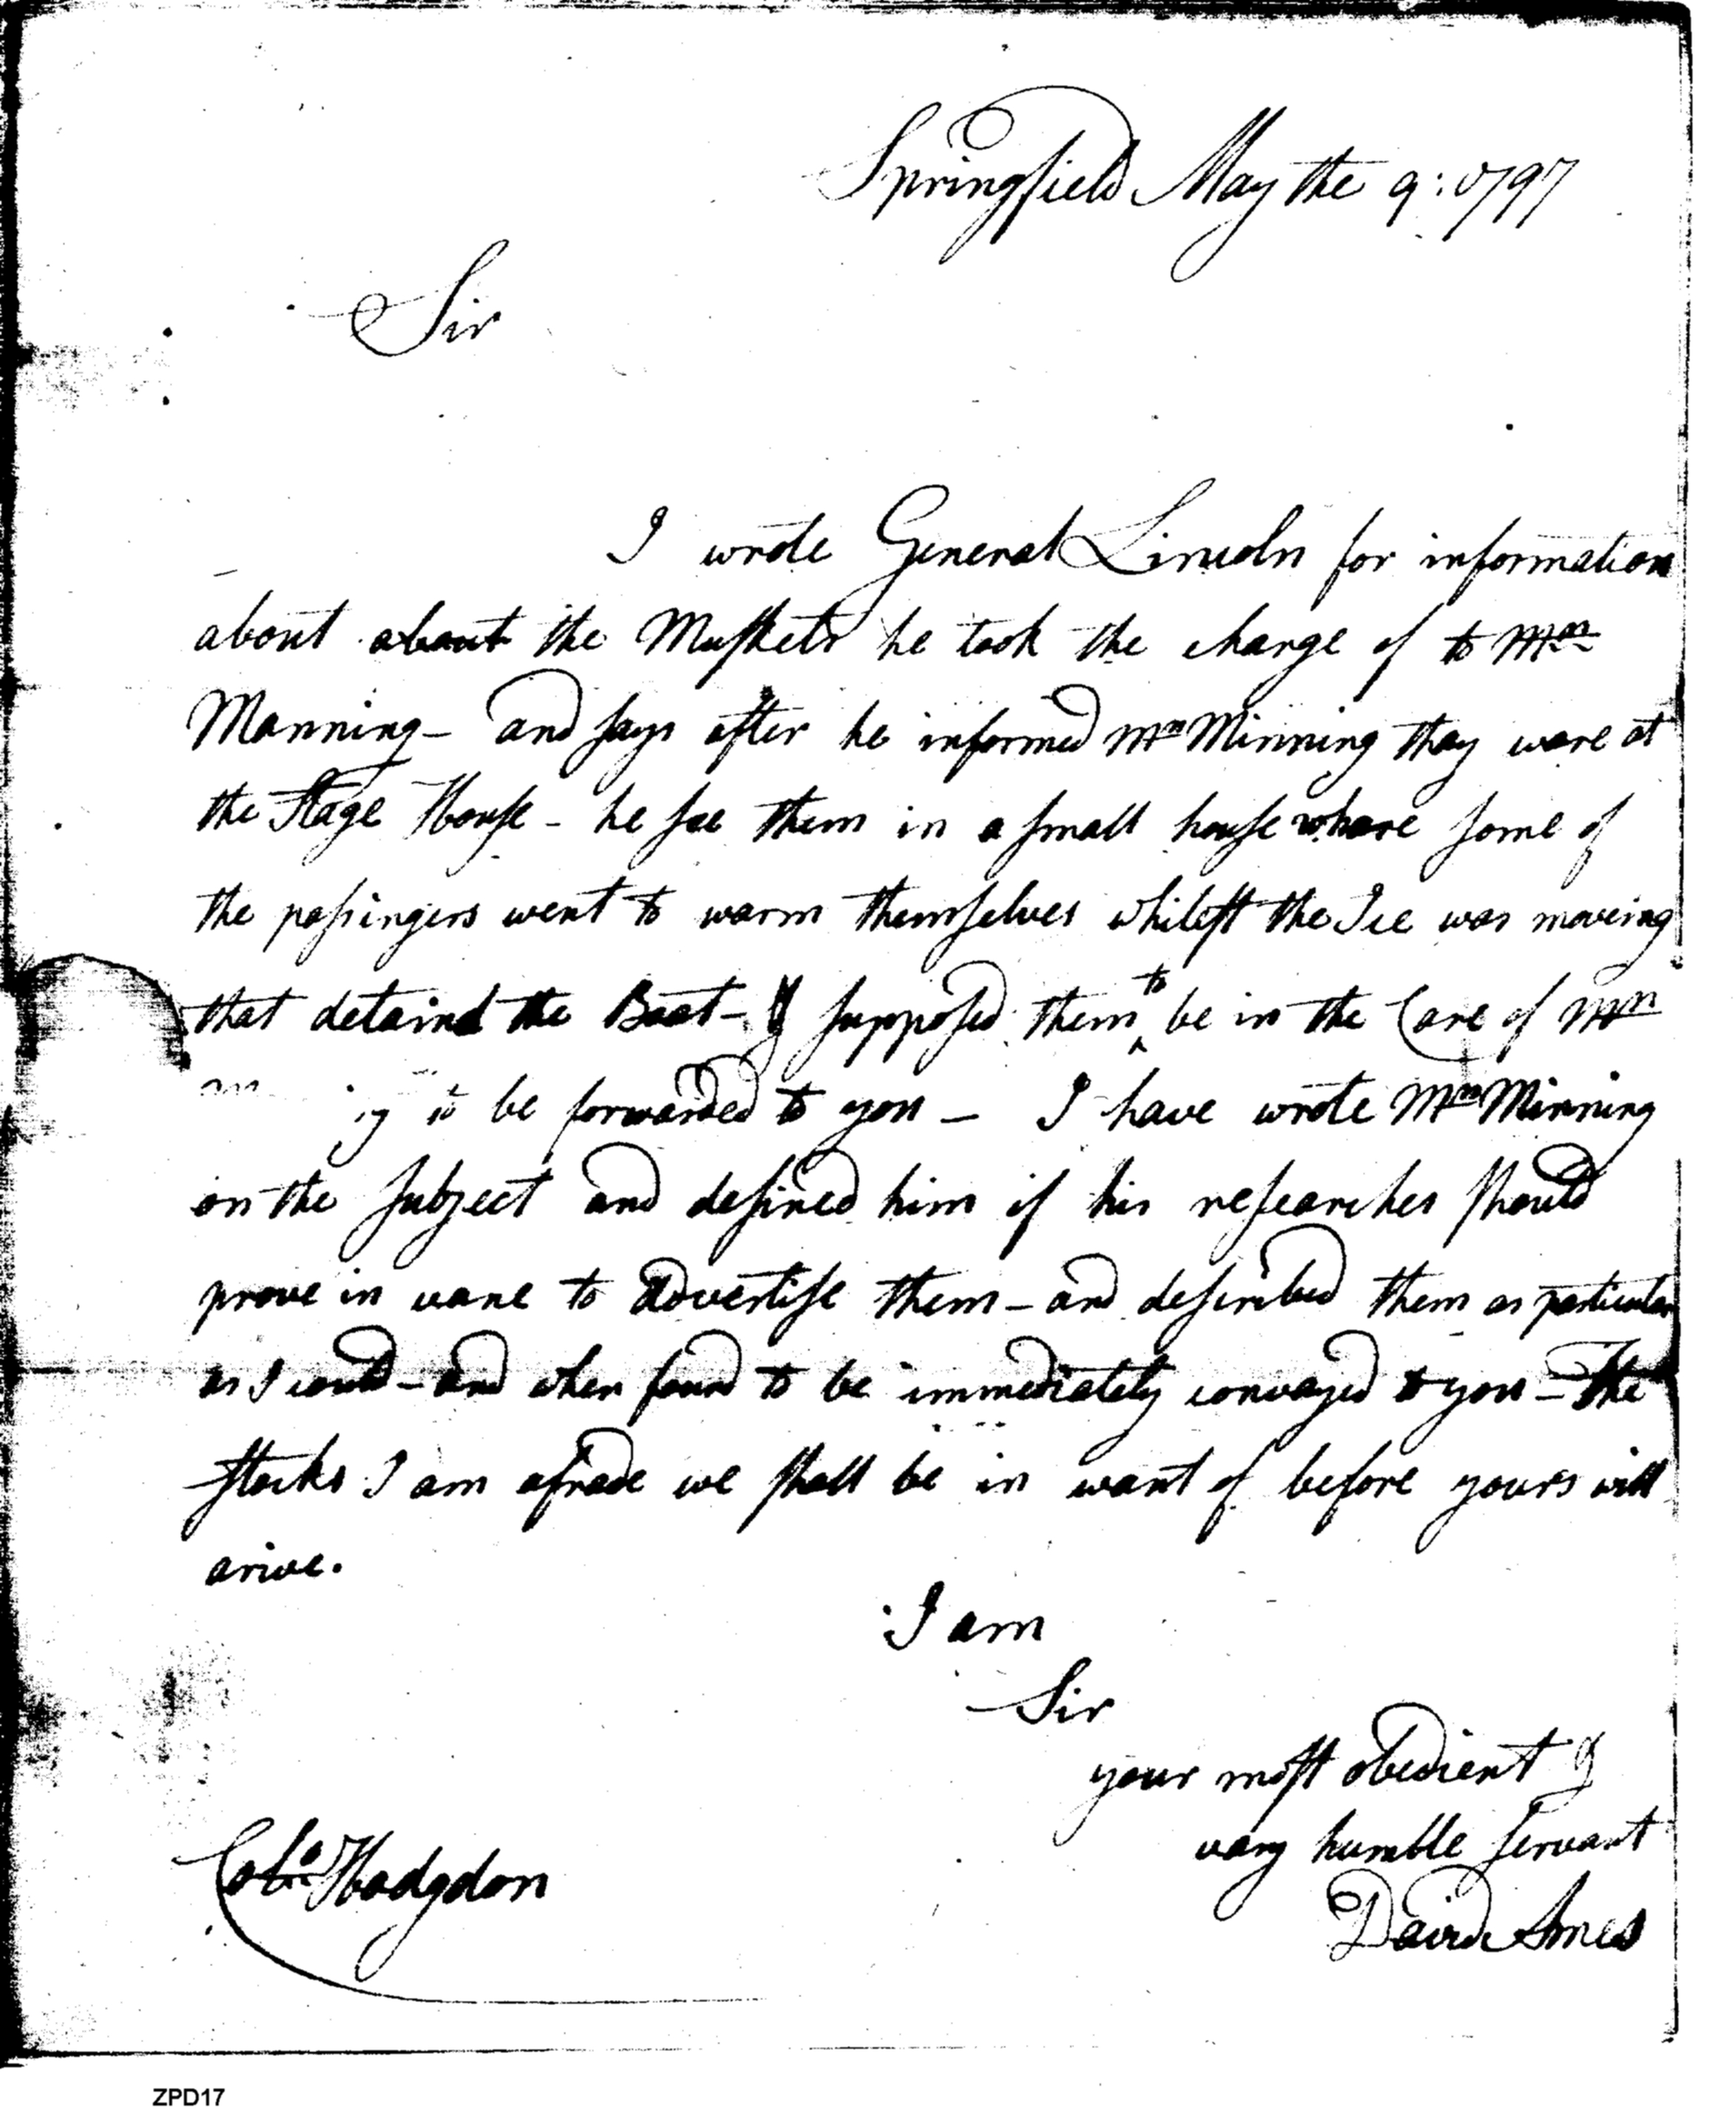 Springfield May the 9: 1797
Sir
I wrote General Lincoln for information
about about the Muskets he took the charge of to Mr
Manning – and says after he informed Mr Minning thay ware at
the Stage House – he see them in a small house whare some of
the passingers went to warm themselves whilest the Ice was moveing
that detaind the Boat – & supposed them to be in the Care of Mr
to be forwarded to you – I have wrote Mr Minning
on the subject and desired him if his researches should
prove in vane to advertise them – and described them as particular
as I could – and when found to be immediately convayed to you – The
stocks I am afrade we shall be in want of before yours will
arive.
I am
Sir
your most obedient &
vary humble servant
David Ames
Colo Hodgdon
ZPD17